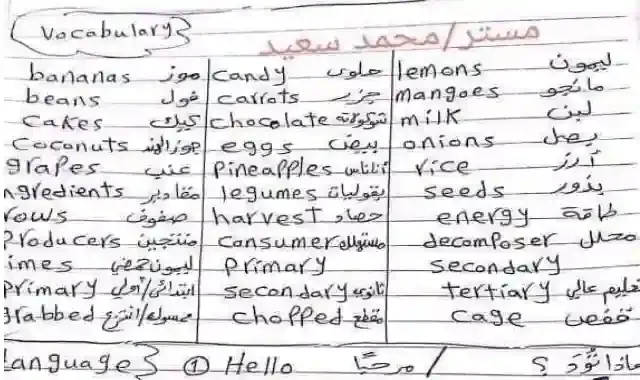 Vocabulary مستر/محمد سعيد
bananas موز candy حلوى lemons ليمون
beans فول carrots جزر mangoes مانجو
cakes كيك chocolate شوكولاته milk لبن
coconuts جوز الهند eggs بيض onions بصل
grapes عنب pineapples أناناس rice أرز
ngredients مقادير legumes بقوليات seeds بذور
rows صفوف harvest حصاد energy طاقة
producers منتجين consumer مستهلك decomposer محلل
imes ليمون حمضي primary secondary
primary ابتدائى/أولي secondary ثانوي tertiary تعليم عالي
grabbed chopped مقطع cage قفص
Language ① Hello مرحبًا / ماذا تؤد ؟